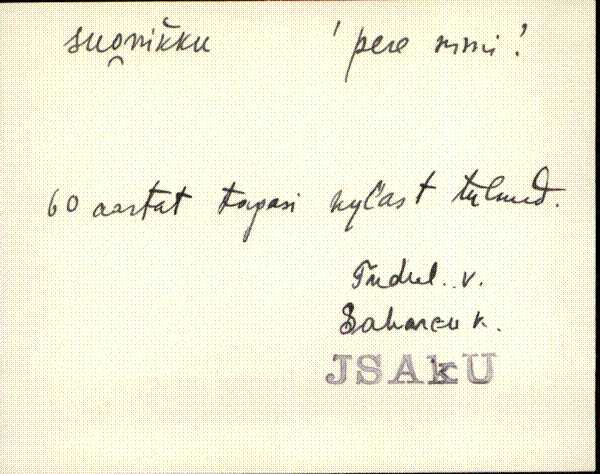 suo̯nikku 'pere nimi'.
60 aastat tagasi kyl'ast tulnud.
Tudul. v.
Saharcu k.
JSAkU